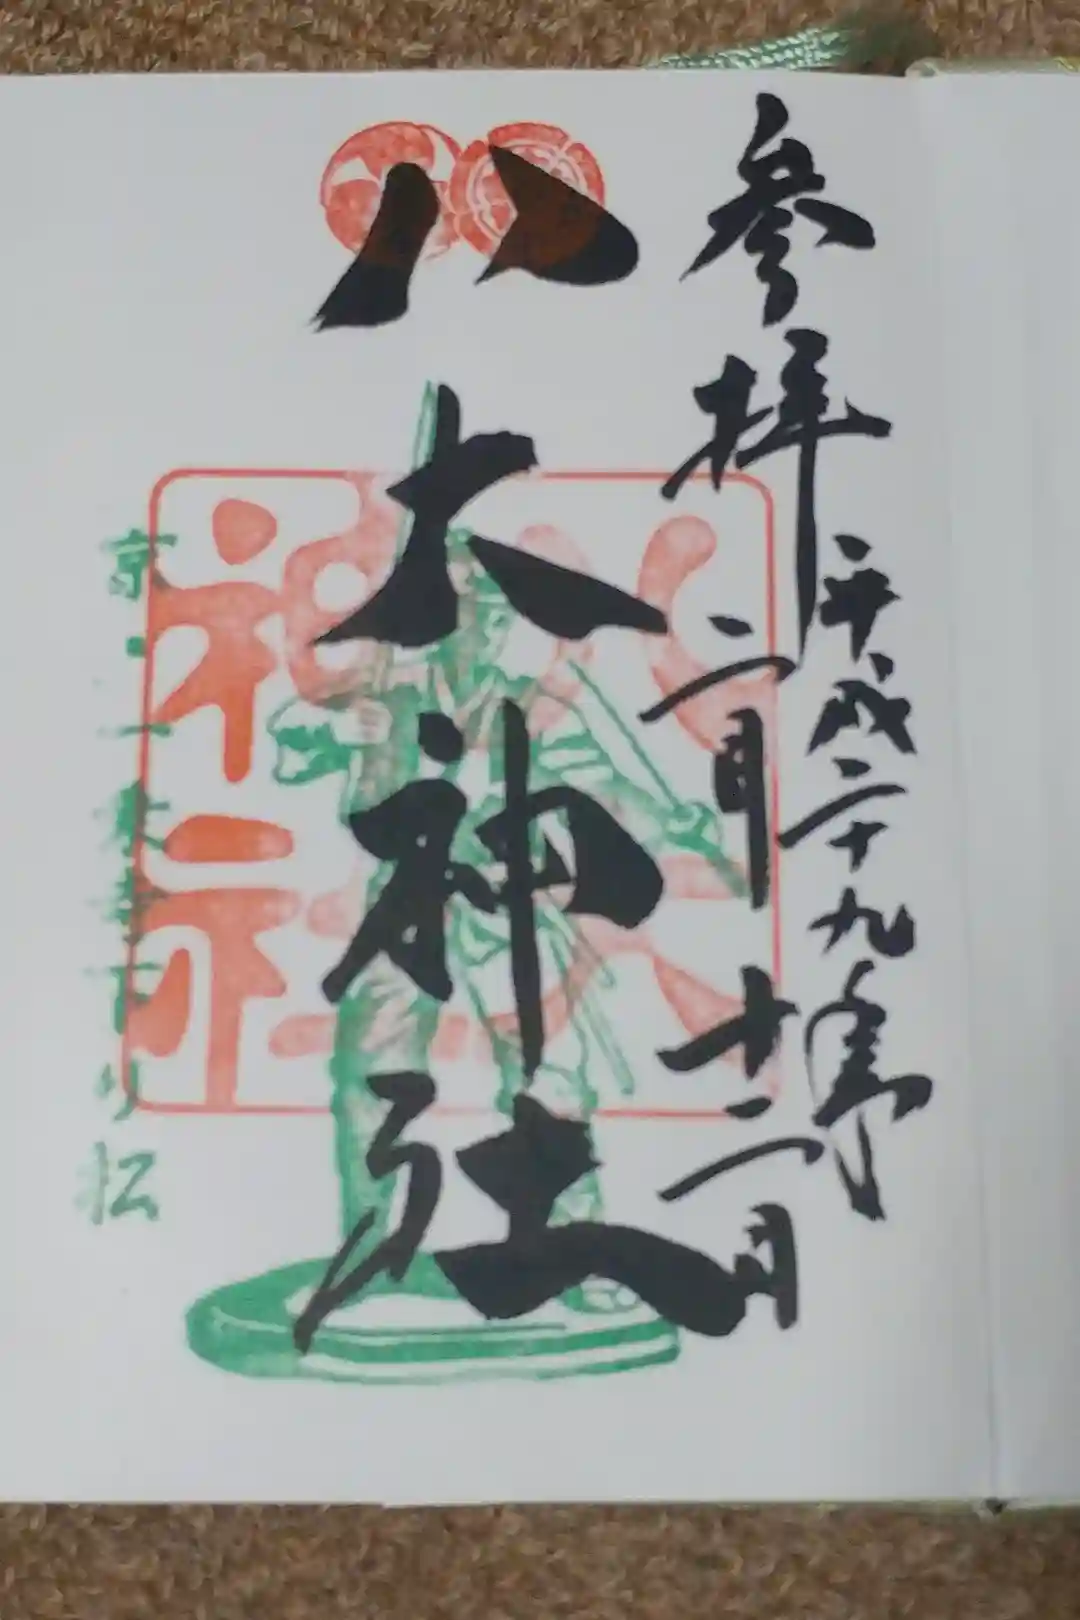 参拝
平成二十九年
二月十二日
八大神社
八大
神社
京・一乗寺下り松